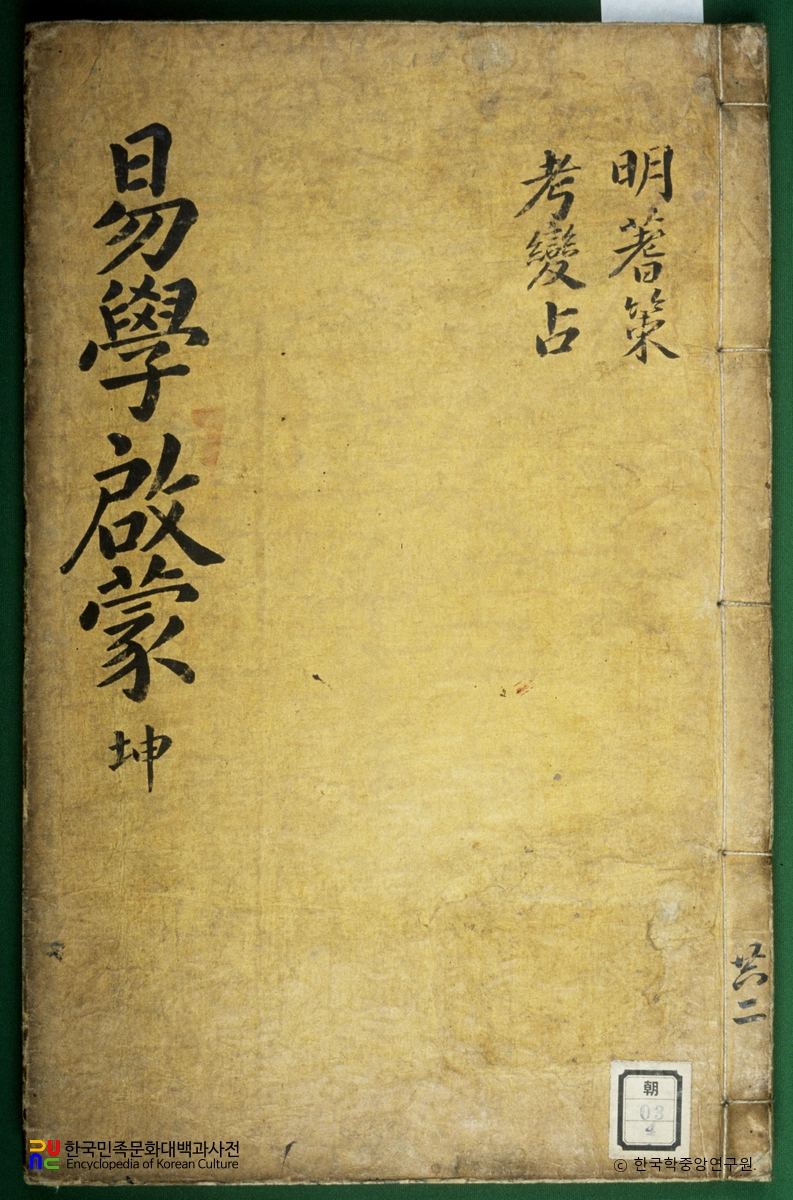 明蓍策
考變占
易學啟蒙 坤
共二
朝
03
4
한국민족문화대백과사전
Encyclopedia of Korean Culture
© 한국학중앙연구원.